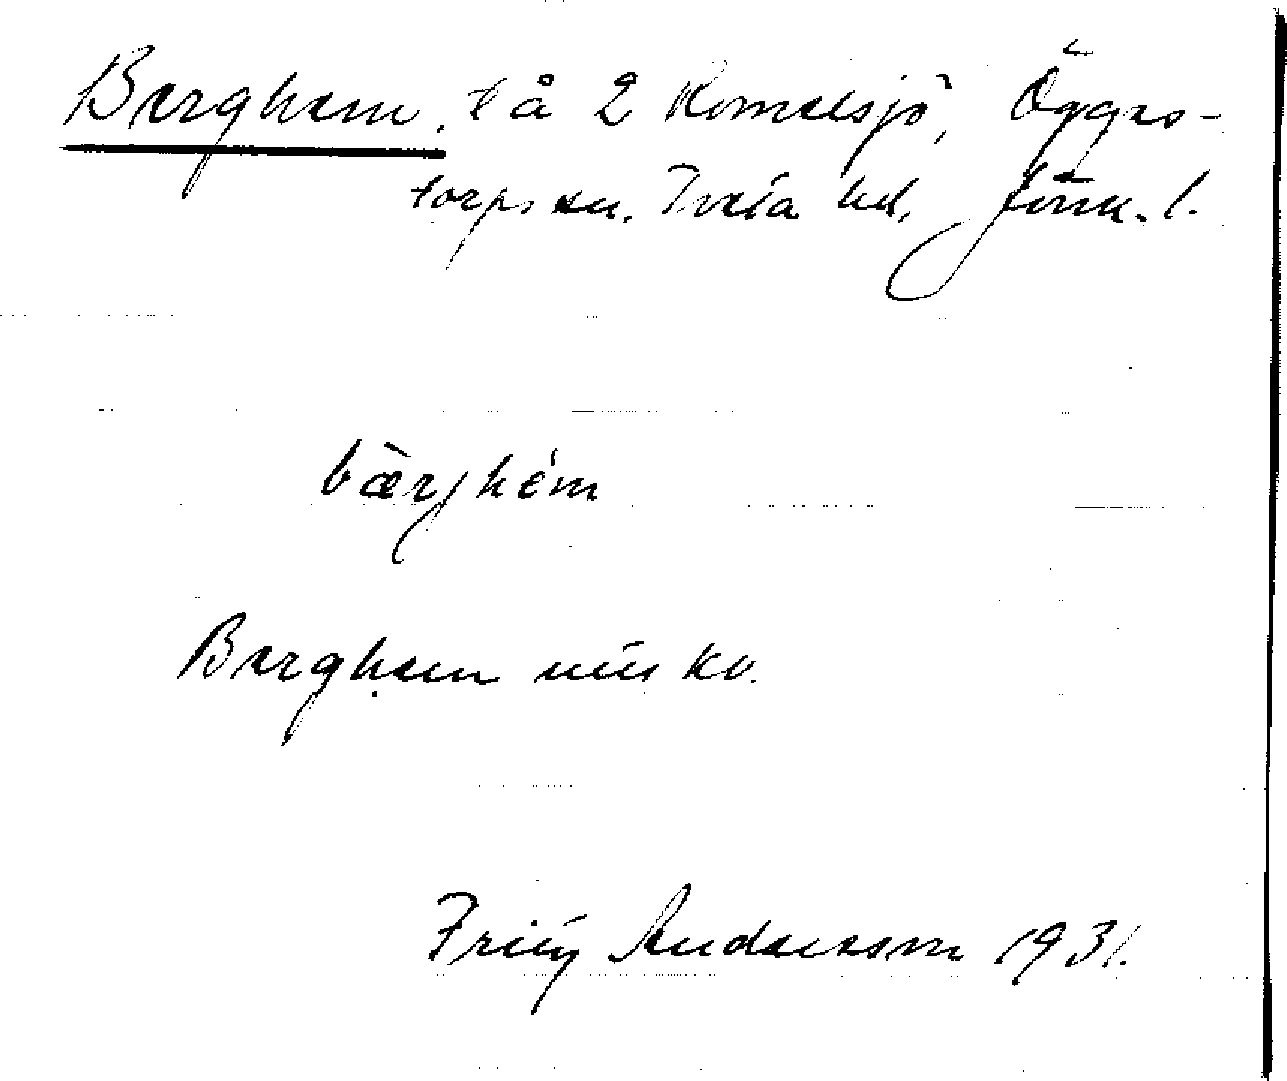 Berghem. l å 2 Komelsjö, Ögges-
torps sn. Tveta hd, Jönk. l.
bæ̀rjhém
Berghem
Fritz Andersson 1931.